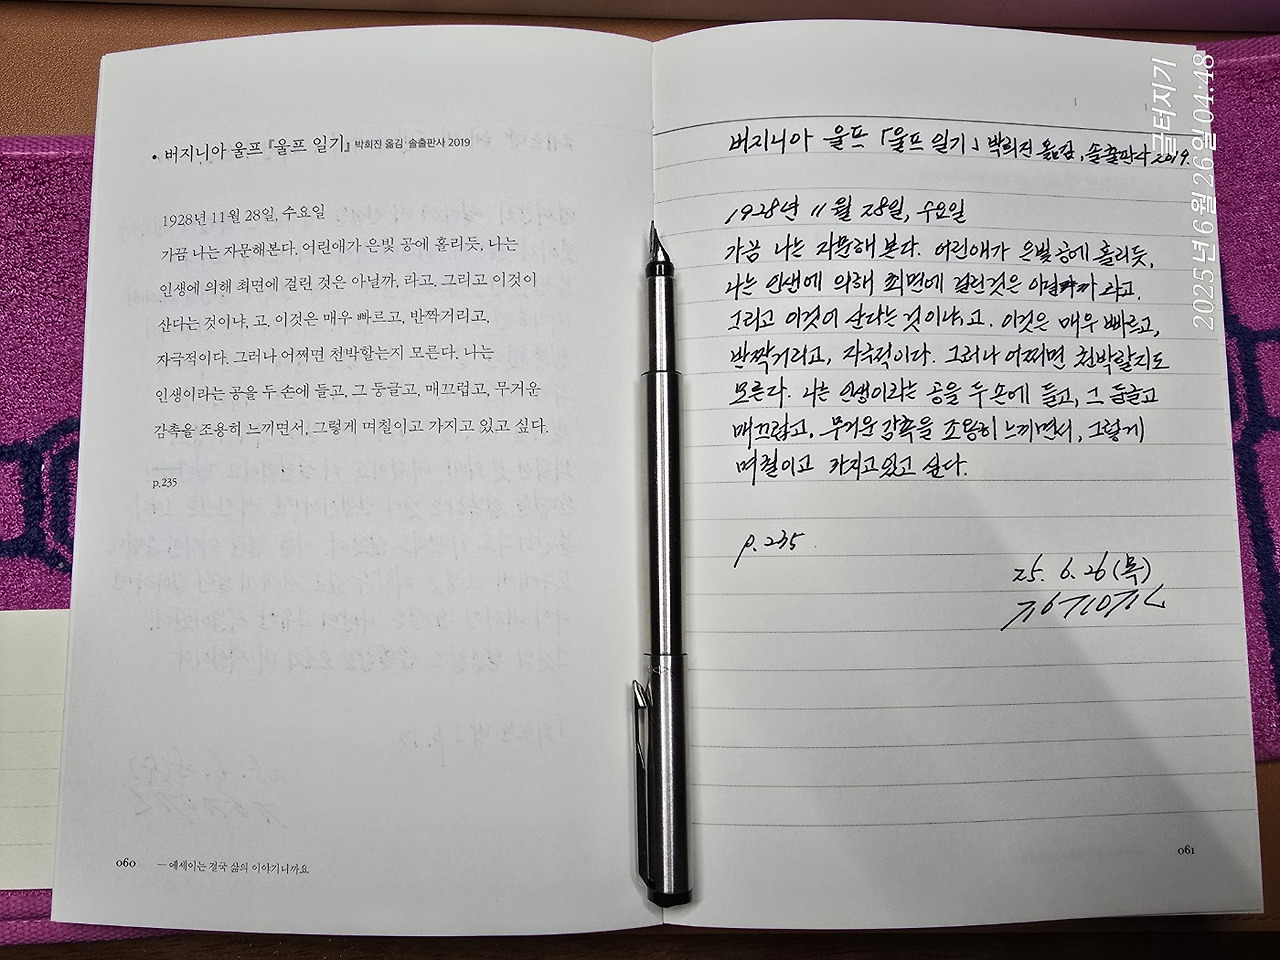 • 버지니아 울프 『울프 일기』 박희진 옮김·솔출판사 2019
1928년 11월 28일, 수요일
가끔 나는 자문해본다. 어린애가 은빛 공에 홀리듯, 나는
인생에 의해 최면에 걸린 것은 아닐까, 라고. 그리고 이것이
산다는 것이냐, 고. 이것은 매우 빠르고, 반짝거리고,
자극적이다. 그러나 어쩌면 천박할는지 모른다. 나는
인생이라는 공을 두 손에 들고, 그 둥글고, 매끄럽고, 무거운
감촉을 조용히 느끼면서, 그렇게 며칠이고 가지고 있고 싶다.
p.235
060 — 에세이는 결국 삶의 이야기니까요
버지니아 울프 「울프 일기」 박희진 옮김, 솔출판사 2019.
1928년 11월 28일, 수요일
가끔 나는 자문해 본다. 어린애가 은빛 공에 홀리듯,
나는 인생에 의해 최면에 걸린것은 아닐까 라고.
그리고 이것이 산다는 것이냐,고. 이것은 매우 빠르고,
반짝거리고, 자극적이다. 그러나 어쩌면 천박할지도
모른다. 나는 인생이라는 공을 두 손에 들고, 그 둥글고
매끄럽고, 무거운 감촉을 조용히 느끼면서, 그렇게
며칠이고 가지고 있고 싶다.
p.235
25. 6. 26 (목)
061
글터지기
2025년 6월 26일 04:48